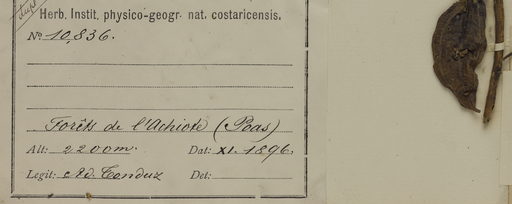 dupl
Herb. Instit. physico-geogr. nat. costaricensis.
No 10,836.
Forêts de l'Achiote (Poas)
Alt: 2200m. Dat: XI. 1896.
Legit: Ad. Tonduz Det: